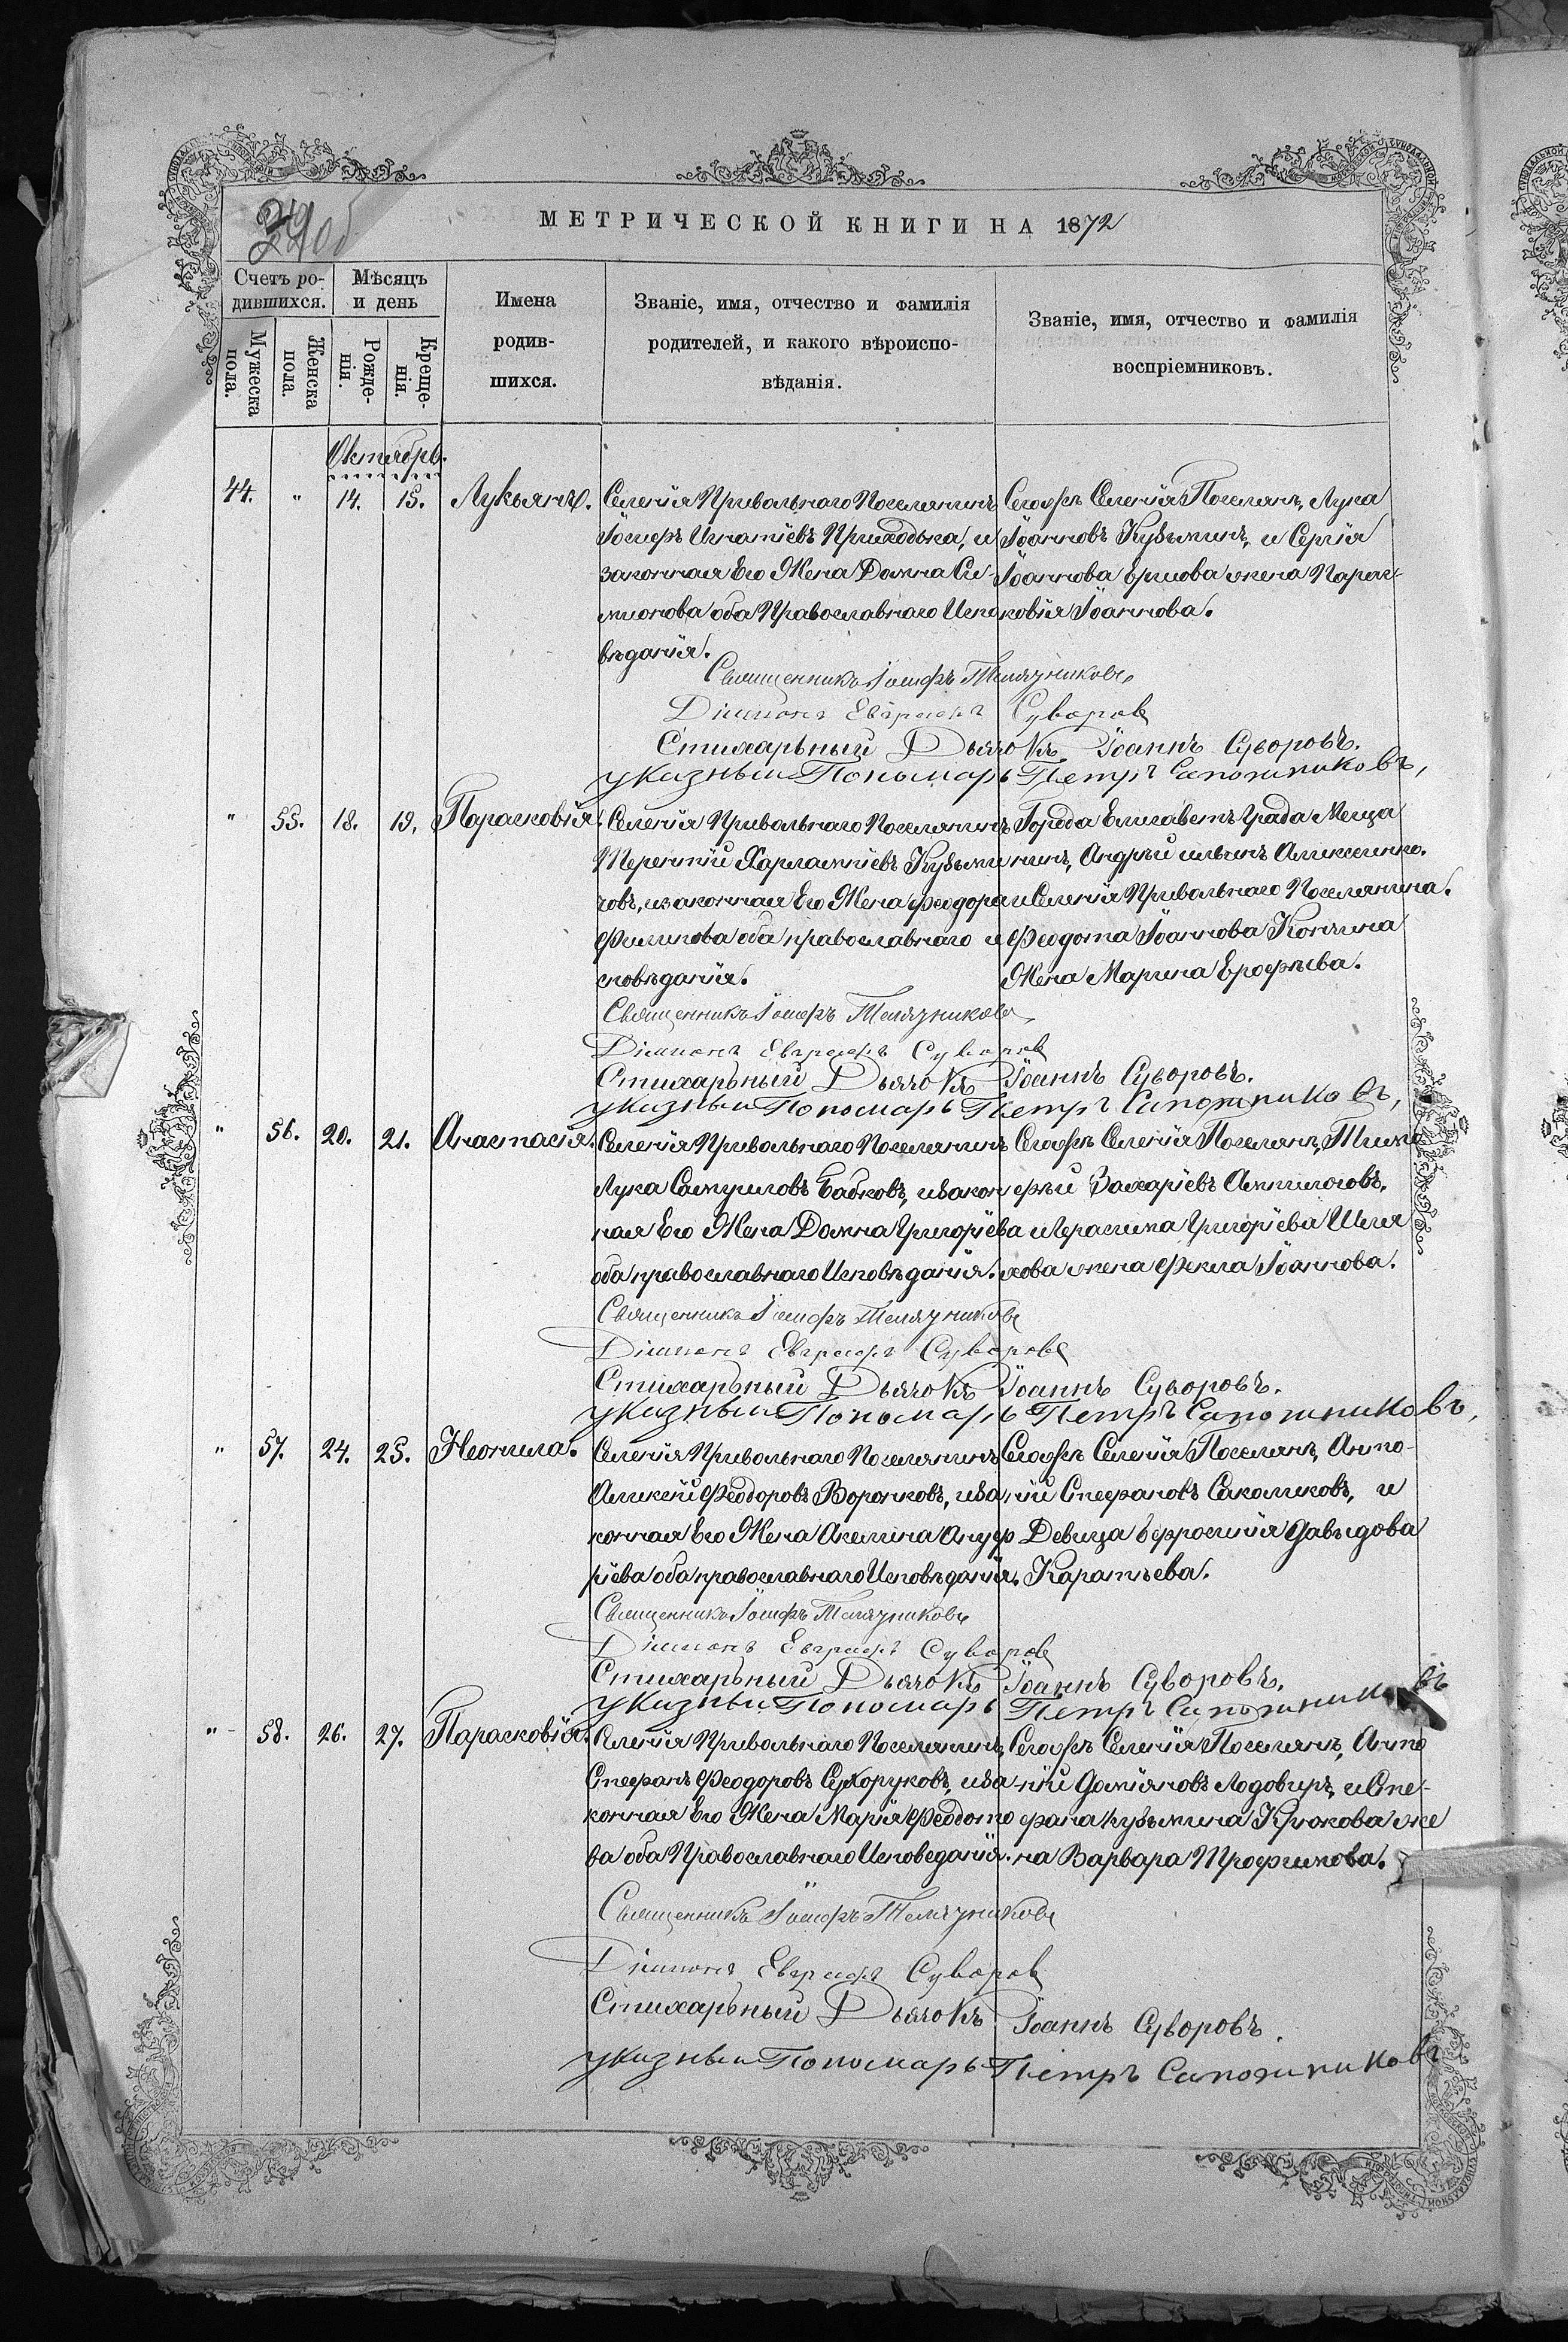 МЕТРИЧЕСКОЙ КНИГИ НА 1872
Счетъ ро-
дившихся.
Мѣсяцъ
и день
Мужеска
пола.
Женска
пола.
Рожде-
нія.
Креще-
нія.
Имена
родив-
шихся.
Званіе, имя, отчество и фамилія
родителей, и какого вѣроиспо-
вѣданія.
Званіе, имя, отчество и фамилія
воспріемниковъ.
Октябрь.
44. " 14. 15. Лукьянъ.
Селенія Привольнаго Поселянинъ
Іосифъ Игнатіевъ Приходька, и
законная Его Жена Домна Си-
мионова оба Православнаго Испо
вѣданія.
Сегожъ Селенія Поселян, Лука
Іоанновъ Кузьминъ, и Сергія
Іоаннова Ершова жена Парас-
ковія Іоаннова.
Священникъ Іосифъ
Діаконъ Евграфъ Суворов
Стихарьный Дьячокъ Іоаннъ Суворовъ.
указный Пономарь Петръ Сапожниковъ,
" 55. 18. 19. Парасковія.
Селенія Привольнаго Поселянинъ
Терентій Харлампіевъ Кузьми
човъ, изаконная Его Жена Феодора
Филипова оба православнаго и
сповѣданія.
Города Елисаветъграда Меща
нинъ, Андрѣй ильинъ Аликсеинко.
и Селенія Привольнаго Поселянина.
Феодота Іоаннова Конкина
Жена Марина Ерофѣева.
Священникъ Іосифъ
Діаконъ Евграфъ Суворов
Стихарьный Дьячокъ Іоаннъ Суворовъ.
указный Пономарь Петръ Сапожниковъ,
" 56. 20. 21. Анастасія.
Селенія Привольнаго Поселянинъ
Лука Самуиловъ Бабковъ, изакон
ная Его Жена Домна Григоріева
оба православнаго Исповѣданія.
Сегожъ Селенія Поселян, Тимо
фѣй Захаріевъ Ампилоговъ,
иГерасима Григоріева Шеля
хова жена Фекла Іоаннова.
Священникъ Іосифъ
Діаконъ Евграфъ Суворовъ
Стихарьный Дьячокъ Іоаннъ Суворовъ.
указный Пономарь Петръ Сапожниковъ,
" 57. 24. 25. Неонила.
Селенія Привольнаго Поселянинъ
Аликсей Феодоровъ Воронковъ, иза
конная Его Жена Акелина Ануф
ріева оба православнаго Исповѣданія.
Сегожъ Селенія Поселян, Анто-
ній Стефановъ Сакаликовъ, и
Девица Ефросинія Давыдова
Каратѣева.
Священникъ Іосифъ
Діаконъ Евграфъ Суворов
Стихарьный Дьячокъ Іоаннъ Суворовъ.
указный Пономарь Петръ Сапожниковъ
" 58. 26. 27. Парасковія.
Селенія Привольнаго Поселянинъ,
Стефанъ Феодоровъ Сухоруковъ, иза
конная Его Жена Марія Феодото
ва оба Православнаго Исповеданія.
Сегожъ Селенія Поселянъ, Анто
ній Даміановъ Лодовиръ, и Сте-
фана Кузьмина Крюкова же
на Варвара Трофимова.
Священникъ Іосифъ
Діаконъ Евграфъ Суворов
Стихарьный Дьячокъ Іоаннъ Суворовъ.
указный Пономарь Петръ Сапожниковъ